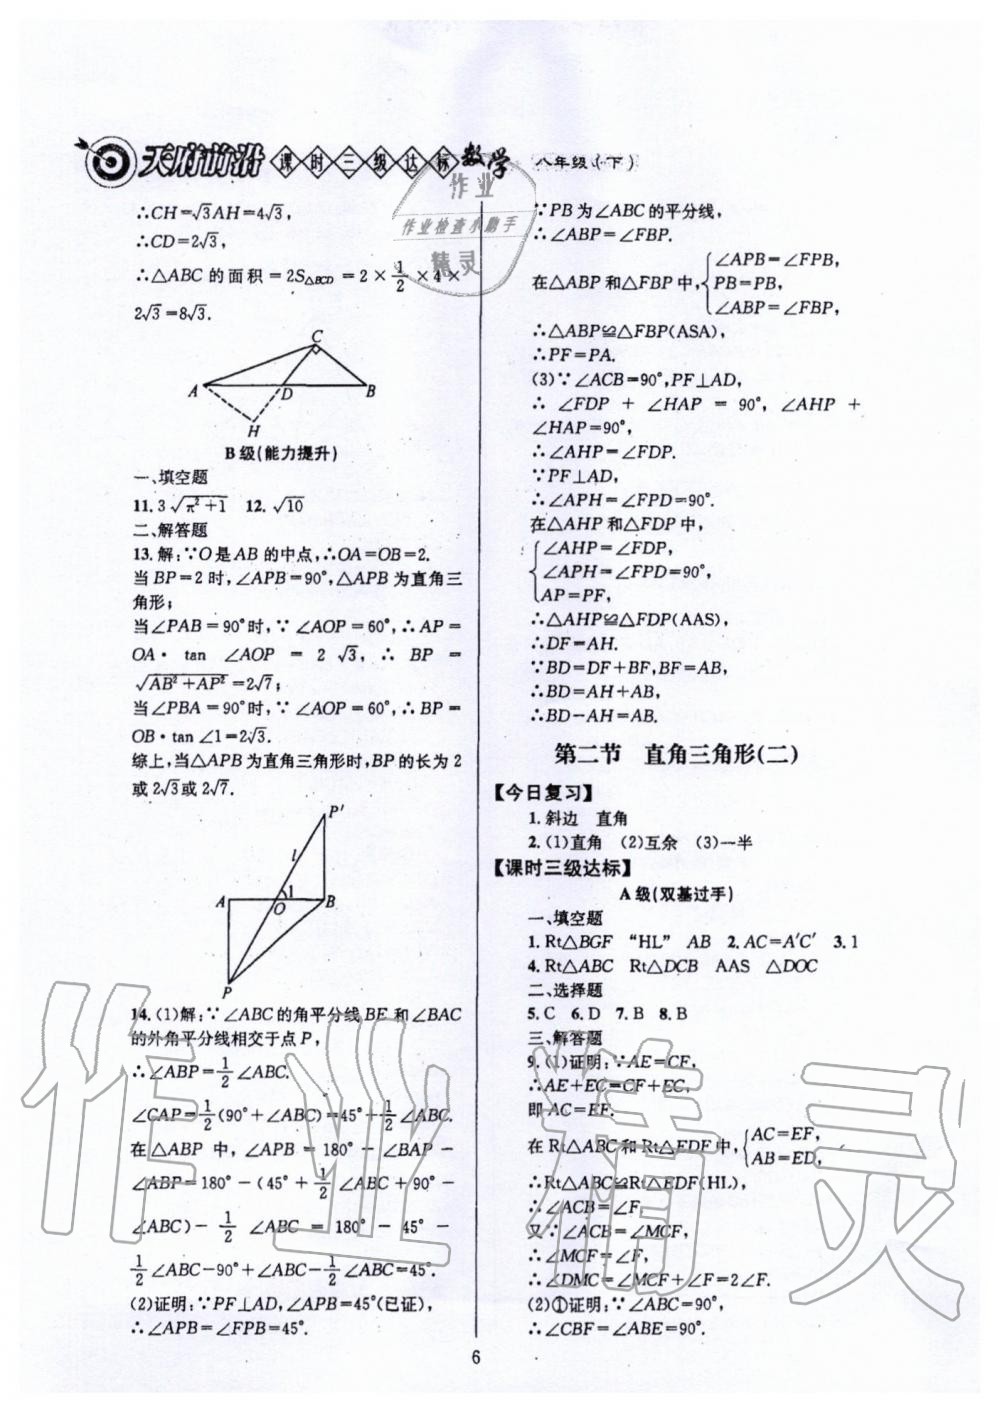 天府前沿 课时三级达标 数学 八年级(下)
∴CH=√3AH=4√3,
∴CD=2√3,
∴△ABC的面积=2S△BCD=2×1/2×4×
2√3=8√3.
C
A D B
H
B级(能力提升)
一、填空题
11. 3√(π²+1) 12. √10
二、解答题
13.解:∵O是AB的中点,∴OA=OB=2.
当BP=2时,∠APB=90°,△APB为直角三
角形;
当∠PAB=90°时,∵∠AOP=60°,∴AP=
OA·tan ∠AOP=2√3,∴BP=
√(AB²+AP²)=2√7;
当∠PBA=90°时,∵∠AOP=60°,∴BP=
OB·tan∠1=2√3.
综上,当△APB为直角三角形时,BP的长为2
或2√3或2√7.
P′
l
1
A O B
P
14.(1)解:∵∠ABC的角平分线BE和∠BAC
的外角平分线相交于点P,
∴∠ABP=1/2∠ABC.
∠CAP=1/2(90°+∠ABC)=45°+1/2∠ABC.
在△ABP中,∠APB=180°-∠BAP-
∠ABP=180°-(45°+1/2∠ABC+90°-
∠ABC)-1/2∠ABC=180°-45°-
1/2∠ABC-90°+∠ABC-1/2∠ABC=45°.
(2)证明:∵PF⊥AD,∠APB=45°(已证),
∴∠APB=∠FPB=45°.
∵PB为∠ABC的平分线,
∴∠ABP=∠FBP.
在△ABP和△FBP中,{∠APB=∠FPB,
PB=PB,
∠ABP=∠FBP,
∴△ABP≌△FBP(ASA),
∴PF=PA.
(3)∵∠ACB=90°,PF⊥AD,
∴∠FDP+∠HAP=90°,∠AHP+
∠HAP=90°,
∴∠AHP=∠FDP.
∵PF⊥AD,
∴∠APH=∠FPD=90°.
在△AHP和△FDP中,
{∠AHP=∠FDP,
∠APH=∠FPD=90°,
AP=PF,
∴△AHP≌△FDP(AAS),
∴DF=AH.
∵BD=DF+BF,BF=AB,
∴BD=AH+AB,
∴BD-AH=AB.
第二节 直角三角形(二)
【今日复习】
1.斜边 直角
2.(1)直角 (2)互余 (3)一半
【课时三级达标】
A级(双基过手)
一、填空题
1.Rt△BGF “HL” AB 2.AC=A′C′ 3.1
4.Rt△ABC Rt△DCB AAS △DOC
二、选择题
5.C 6.D 7.B 8.B
三、解答题
9.(1)证明:∵AE=CF,
∴AE+EC=CF+EC,
即AC=EF.
在Rt△ABC和Rt△EDF中,{AC=EF,
AB=ED,
∴Rt△ABC≌Rt△EDF(HL),
∴∠ACB=∠F,
又∵∠ACB=∠MCF,
∴∠MCF=∠F,
∴∠DMC=∠MCF+∠F=2∠F.
(2)①证明:∵∠ABC=90°,
∴∠CBF=∠ABE=90°.
6
作业
作业检查小助手
精灵
作业精灵